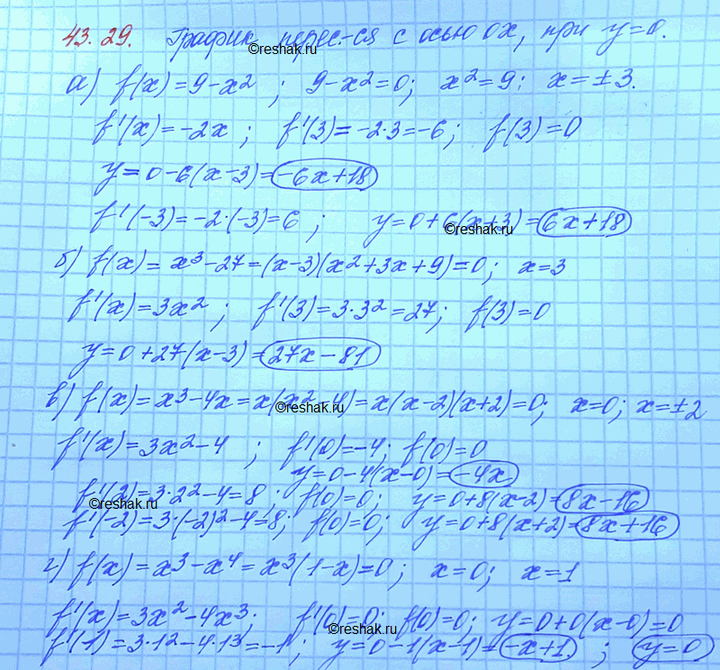 43.29. График перес-ся с осью ох, при y=0.
©reshak.ru
а) f(x)=9-x²; 9-x²=0; x²=9; x=±3.
f'(x)=-2x; f'(3)=-2·3=-6; f(3)=0
y=0-6(x-3)=-6x+18
f'(-3)=-2·(-3)=6; y=0+6(x+3)=6x+18
©reshak.ru
б) f(x)=x³-27=(x-3)(x²+3x+9)=0; x=3
f'(x)=3x²; f'(3)=3·3²=27; f(3)=0
y=0+27(x-3)=27x-81
в) f(x)=x³-4x=x(x²-4)=x(x-2)(x+2)=0; x=0; x=±2
©reshak.ru
f'(x)=3x²-4; f'(0)=-4; f(0)=0
y=0-4(x-0)=-4x
f'(2)=3·2²-4=8; f(0)=0; y=0+8(x-2)=8x-16
©reshak.ru
f'(-2)=3·(-2)²-4=8; f(0)=0; y=0+8(x+2)=8x+16
г) f(x)=x³-x⁴=x³(1-x)=0; x=0; x=1
f'(x)=3x²-4x³; f'(0)=0; f(0)=0; y=0+0(x-0)=0
©reshak.ru
f'(1)=3·1²-4·1³=-1; y=0-1(x-1)=-x+1; y=0